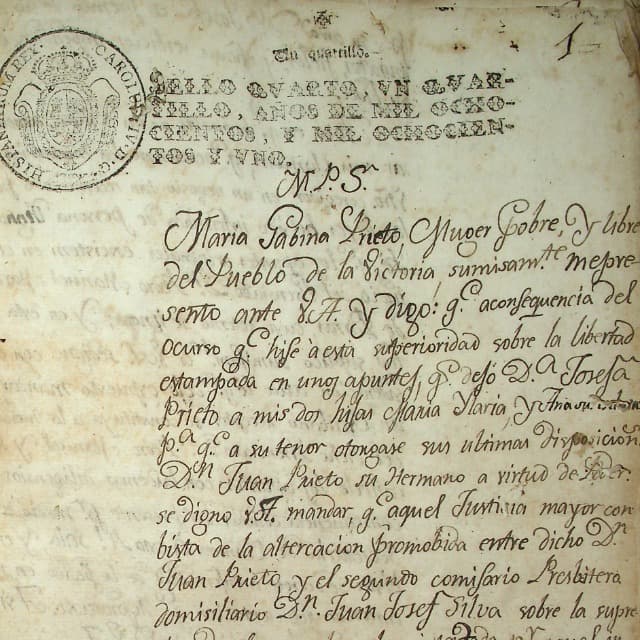 1
Un quartillo.
HISPANIARUM REX CAROLUS IV D.G.
SELLO QVARTO, VN QVAR-
TILLO, AÑOS DE MIL OCHO-
CIENTOS, Y MIL OCHOCIEN-
TOS Y UNO.
M.P.S.r
Maria Gabina Prieto, Muger Pobre, y libre
del Pueblo de la Victoria sumisam.te me pre
sento ante V.A. y digo: q.e aconsequencia del
ocurso q.e hise à esta superioridad sobre la libertad
estampada en unos apuntes, q.e dejó D.a Josefa
Prieto a mis dos hijas Maria Ylaria, y Ana
p.a q.e a su tenor otorgase sus ultimas Disposicion.s
D.n Juan Prieto su Hermano a virtud de Poder.
se digno V.A. mandar, q.e aquel Justicia mayor con
bista de la altercacion promobida entre dicho D.n
Juan Prieto, y el segundo comisario Presbitero
domisiliario D.n Juan Josef Silva sobre la supre